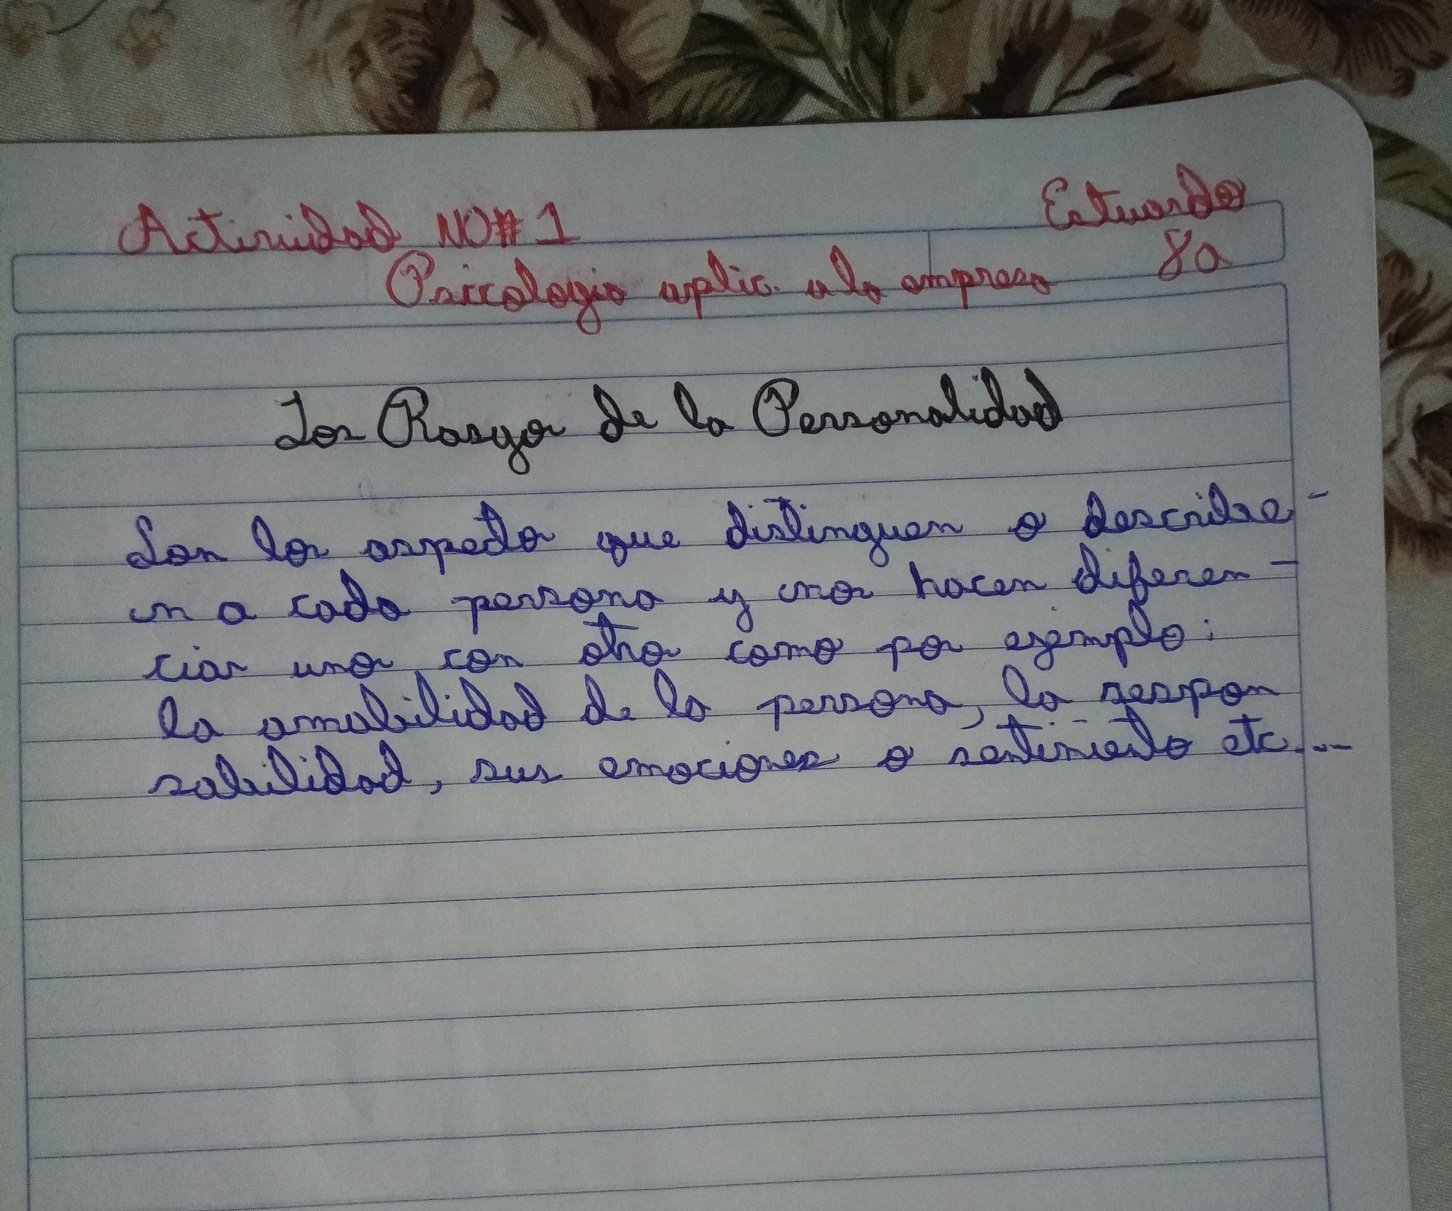 Actividad NO# 1
Estuardo
8a
Psicologia aplic. a la empresa
Los Rasgos de la Personalidad
Son los aspecto que distinguen o describe-
n a cada persona y nos hacen diferen-
ciar unos con otros como por ejemplo:
la amabilidad de la persona, la respon
sabilidad, sus emociones o sentimiento etc...